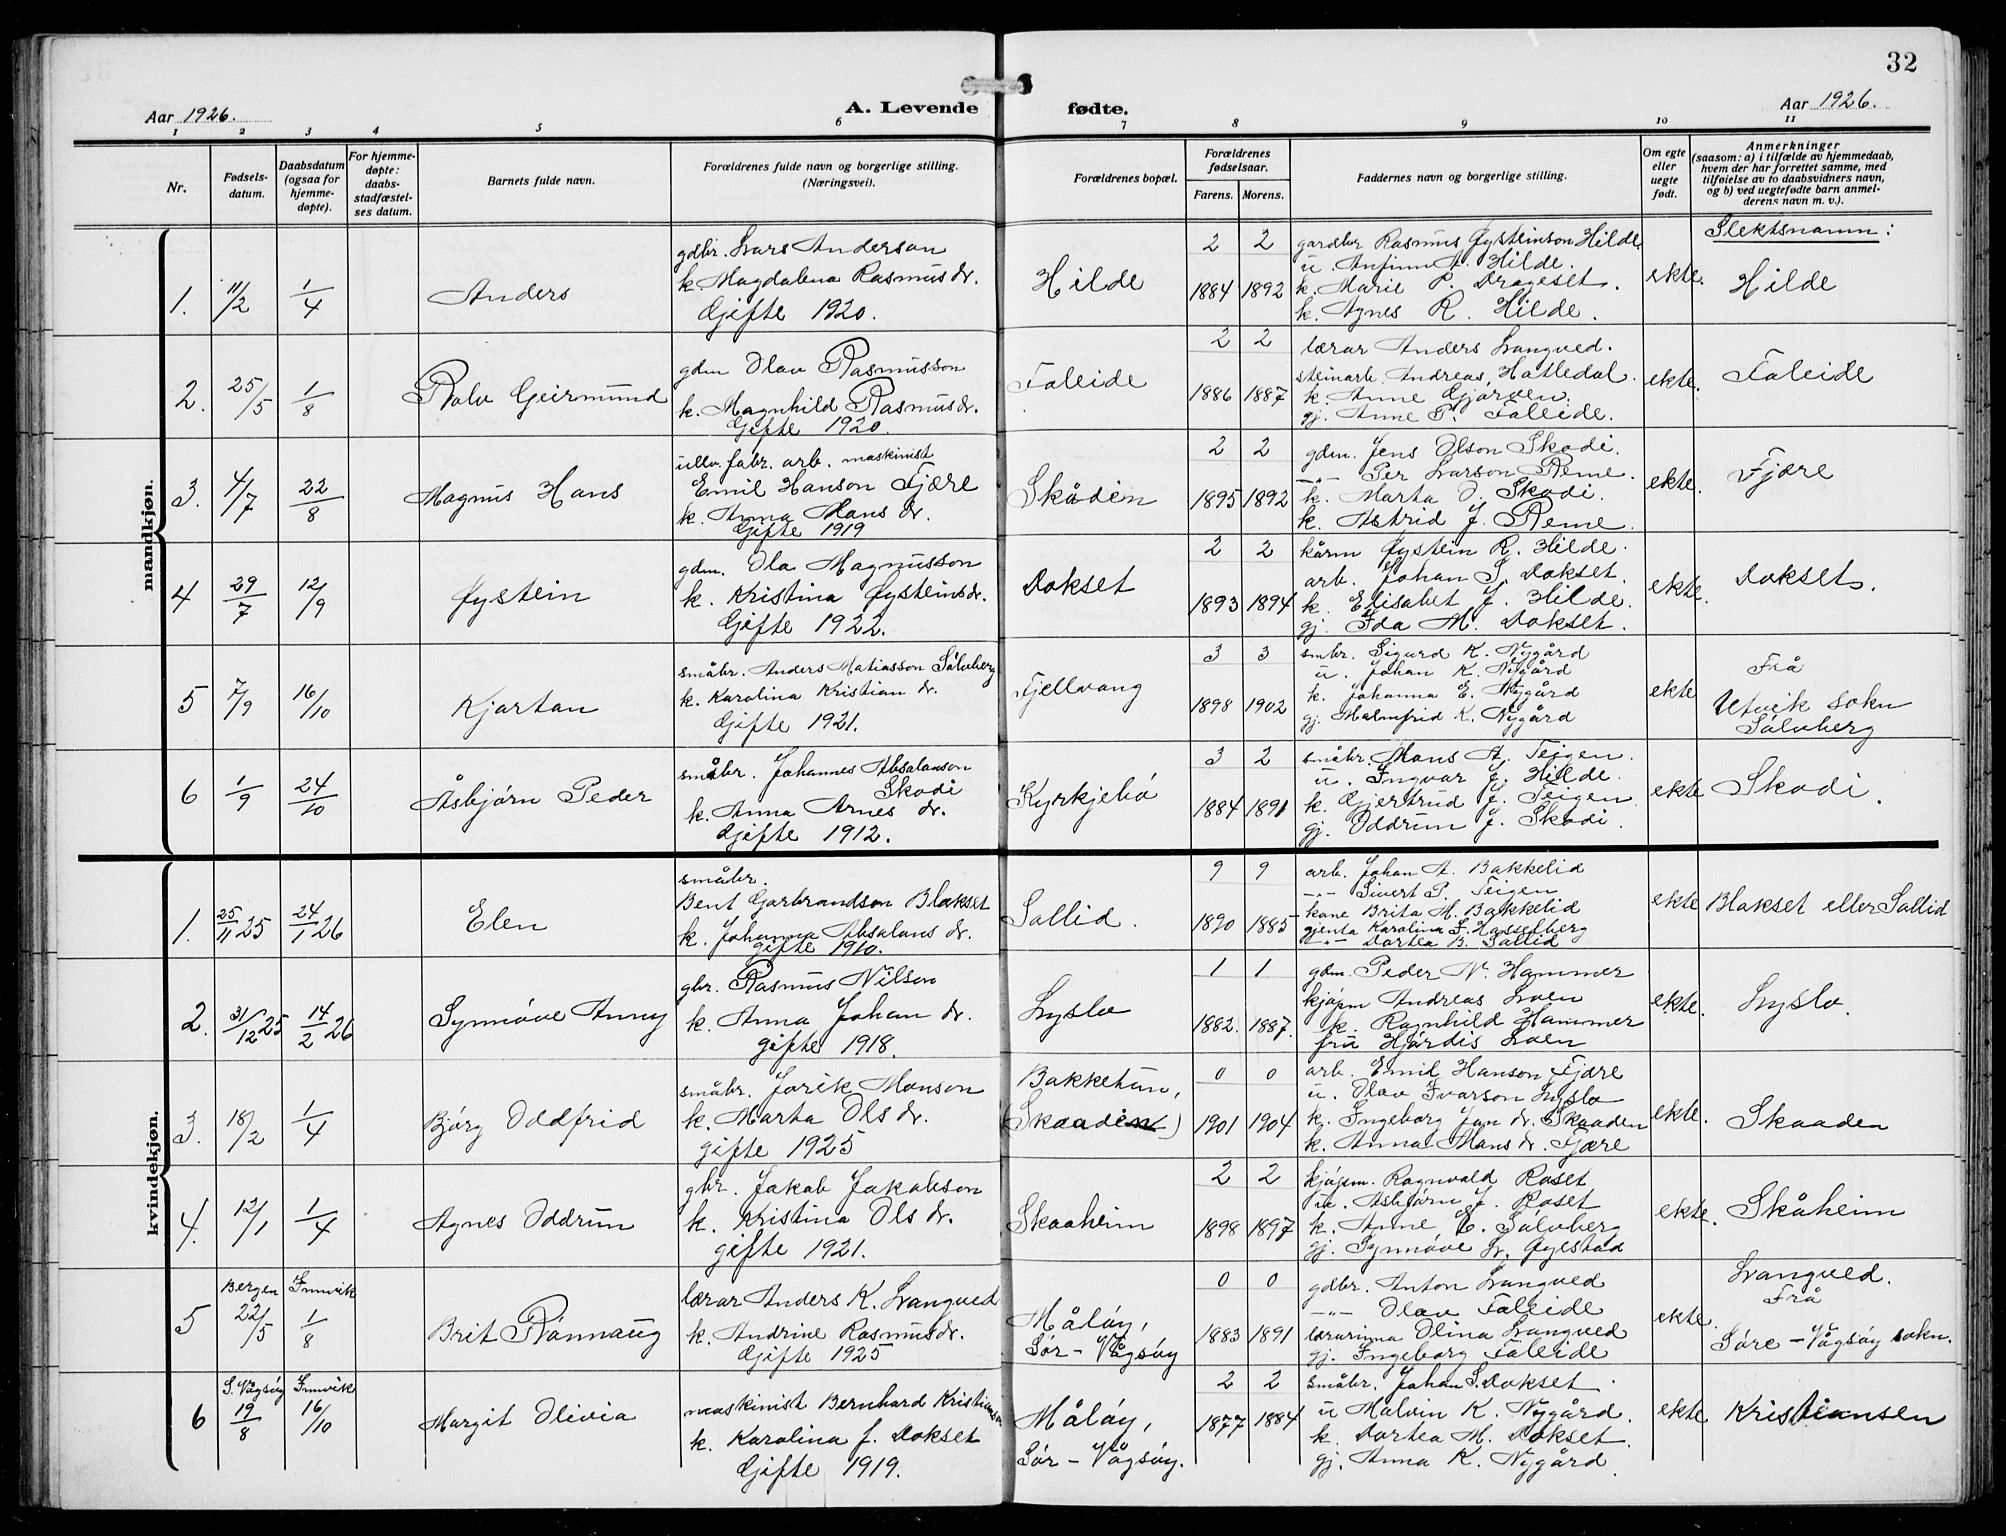 32
Aar 1926.
A. Levende fødte.
Aar 1926.
1 2 3 4 5 6 7 8 9 10 11
Nr.
Fødsels-
datum.
Daabsdatum
(ogsaa for
hjemme-
døpte).
For hjemme-
døpte:
daabs-
stadfæstel-
ses datum.
Barnets fulde navn.
Forældrenes fulde navn og borgerlige stilling.
(Næringsvei).
Forældrenes bopæl.
Forældrenes
fødselsaar.
Farens. Morens.
Faddernes navn og borgerlige stilling.
Om egte
eller
uegte
født.
Anmerkninger
(saasom: a) i tilfælde av hjemmedaab,
hvem der har forrettet samme, med
tilføielse av to daabsvidners navn,
og b) ved uegtefødte barn anmel-
derens navn m. v.).
Slektsnamn:
mandkjøn.
1. 11/2 1/4 Anders
gdbr. Lars Anderson
k. Magdalena Rasmusdr.
Gifte 1920.
Hilde
2 2
1884 1892
gardbr Rasmus Øysteinson Hilde
u. Anfinn A. Hilde.
k. Marie P. Drageset.
k. Agnes R. Hilde.
ekte. Hilde
2. 25/5 1/8 Rolv Geirmund
gdm Olav Rasmusson
k. Magnhild Rasmusdr.
Gifte 1920.
Faleide
2 2
1886 1887
lærar Anders Langved.
steinarb. Andreas Hatledal.
k. Anne Gjørven.
gj. Anne P. Faleide.
ekte. Faleide
3. 4/7 22/8 Magnus Hans
ullv. fabr. arb. maskinist
Emil Hanson Fjære
k. Anna Mons dr.
Gifte 1919
Skåden
2 2
1895 1892
gdm. Jens Olson Skodi.
-"- Per Larson Reme.
k. Marta O. Skodi.
k. Astrid J. Reme.
ekte. Fjære
4 29/7 12/9 Øystein
gdm. Ola Magnusson
k. Kristina Øysteinsdr.
Gifte 1922.
Dokset
2 2
1893 1894
kårm Øystein R. Hilde.
arb. Johan S. Dokset.
k. Elisabet J. Hilde.
gj. Ida M. Dokset.
ekte. Dokset.
5 7/9 16/10 Kjartan
småbr. Anders Matiasson Sølvberg
k. Karolina Kristian dr.
Gifte 1921.
Fjellvang
3 3
1898 1902
smbr. Sigurd K. Nygård
u. Johan K. Nygård
k. Johanna E. Nygård
gj. Malmfrid K. Nygård
ekte
Frå
Utvik sokn
Sølvberg
6 1/9 24/10 Åsbjørn Peder
småbr. Johannes Absalonson
Skodi
k. Anna Arnes dr.
Gifte 1912.
Kyrkjebø
3 2
1884 1891
småbr. Mons A. Teigen.
u. Ingvar J. Hilde.
k. Gjertrud J. Teigen
gj. Oddrun J. Skodi.
ekte Skodi.
kvindekjøn.
1. 25/11 25 24/1 26 Elen
småbr.
Bent Garbrandson Blakset
k. Johanna Absalons dr.
gifte 1910.
Sollid.
9 9
1890 1885
arb. Johan A. Bakkelid
-"- Sivert P. Teigen
kone Brita M. Bakkelid
gjenta Karolina F. Hasselberg
-"- Dortea B. Sollid
ekte Blakset eller Sollid
2. 31/12 25 14/2 26 Synnøve Anny
gbr. Rasmus Nilson
k. Anna Johan dr.
gifte 1918.
Lyslo
1 1
1882. 1887.
gdm. Peder N. Hammer
kjøpm Andreas Loen
k. Ragnhild Hammer
fru Hjørdis Loen
ekte. Lyslo.
3. 18/2 1/4 Bjørg Oddfrid
småbr. Jørik Monson
k. Marta Ols dr.
gifte 1925
Bakketun,
(Skaaden)
0 0
1901 1904
arb. Emil Hanson Fjære
u. Olav Ivarson Lyslo
k. Ingeborg Jon dr. Skaaden
k. Anna Mons dr. Fjære
ekte. Skaaden
4. 12/1 1/4 Agnes Oddrun
gbr. Jakob Jakobson
k. Kristina Ols dr.
gifte 1921.
Skaaheim
2 2
1898 1897
kjøpm. Ragnvald Roset
u. Asbjørn J. Roset
k. Anne E. Sølvberg
gj. Synnøve L. Gylstad
ekte. Skåheim
5 Bergen 22/5 Innvik 1/8 Brit Rønnaug
lærar Anders K. Langved
k. Andrine Rasmusdr.
Gifte 1925
Måløy,
Sør-Vågsøy
0 0
1883 1891
gdbr. Anton Langved
-"- Olav Faleide
lærarinna Olina Langved
gj. Ingeborg Faleide
ekte.
Langved.
Frå
Søre-Vågsøy sokn.
6 S. Vågsøy 19/8 Innvik 16/10 Margit Olivia
maskinist Bernhard Kristianson
k. Karolina J. Dokset
Gifte 1919.
Måløy,
Sør-Vågsøy.
2 2
1877 1884
småbr. Johan S. Dokset.
u Malvin K. Nygård.
k. Dortea M. Dokset.
gj. Anna K. Nygård
ekte Kristiansen